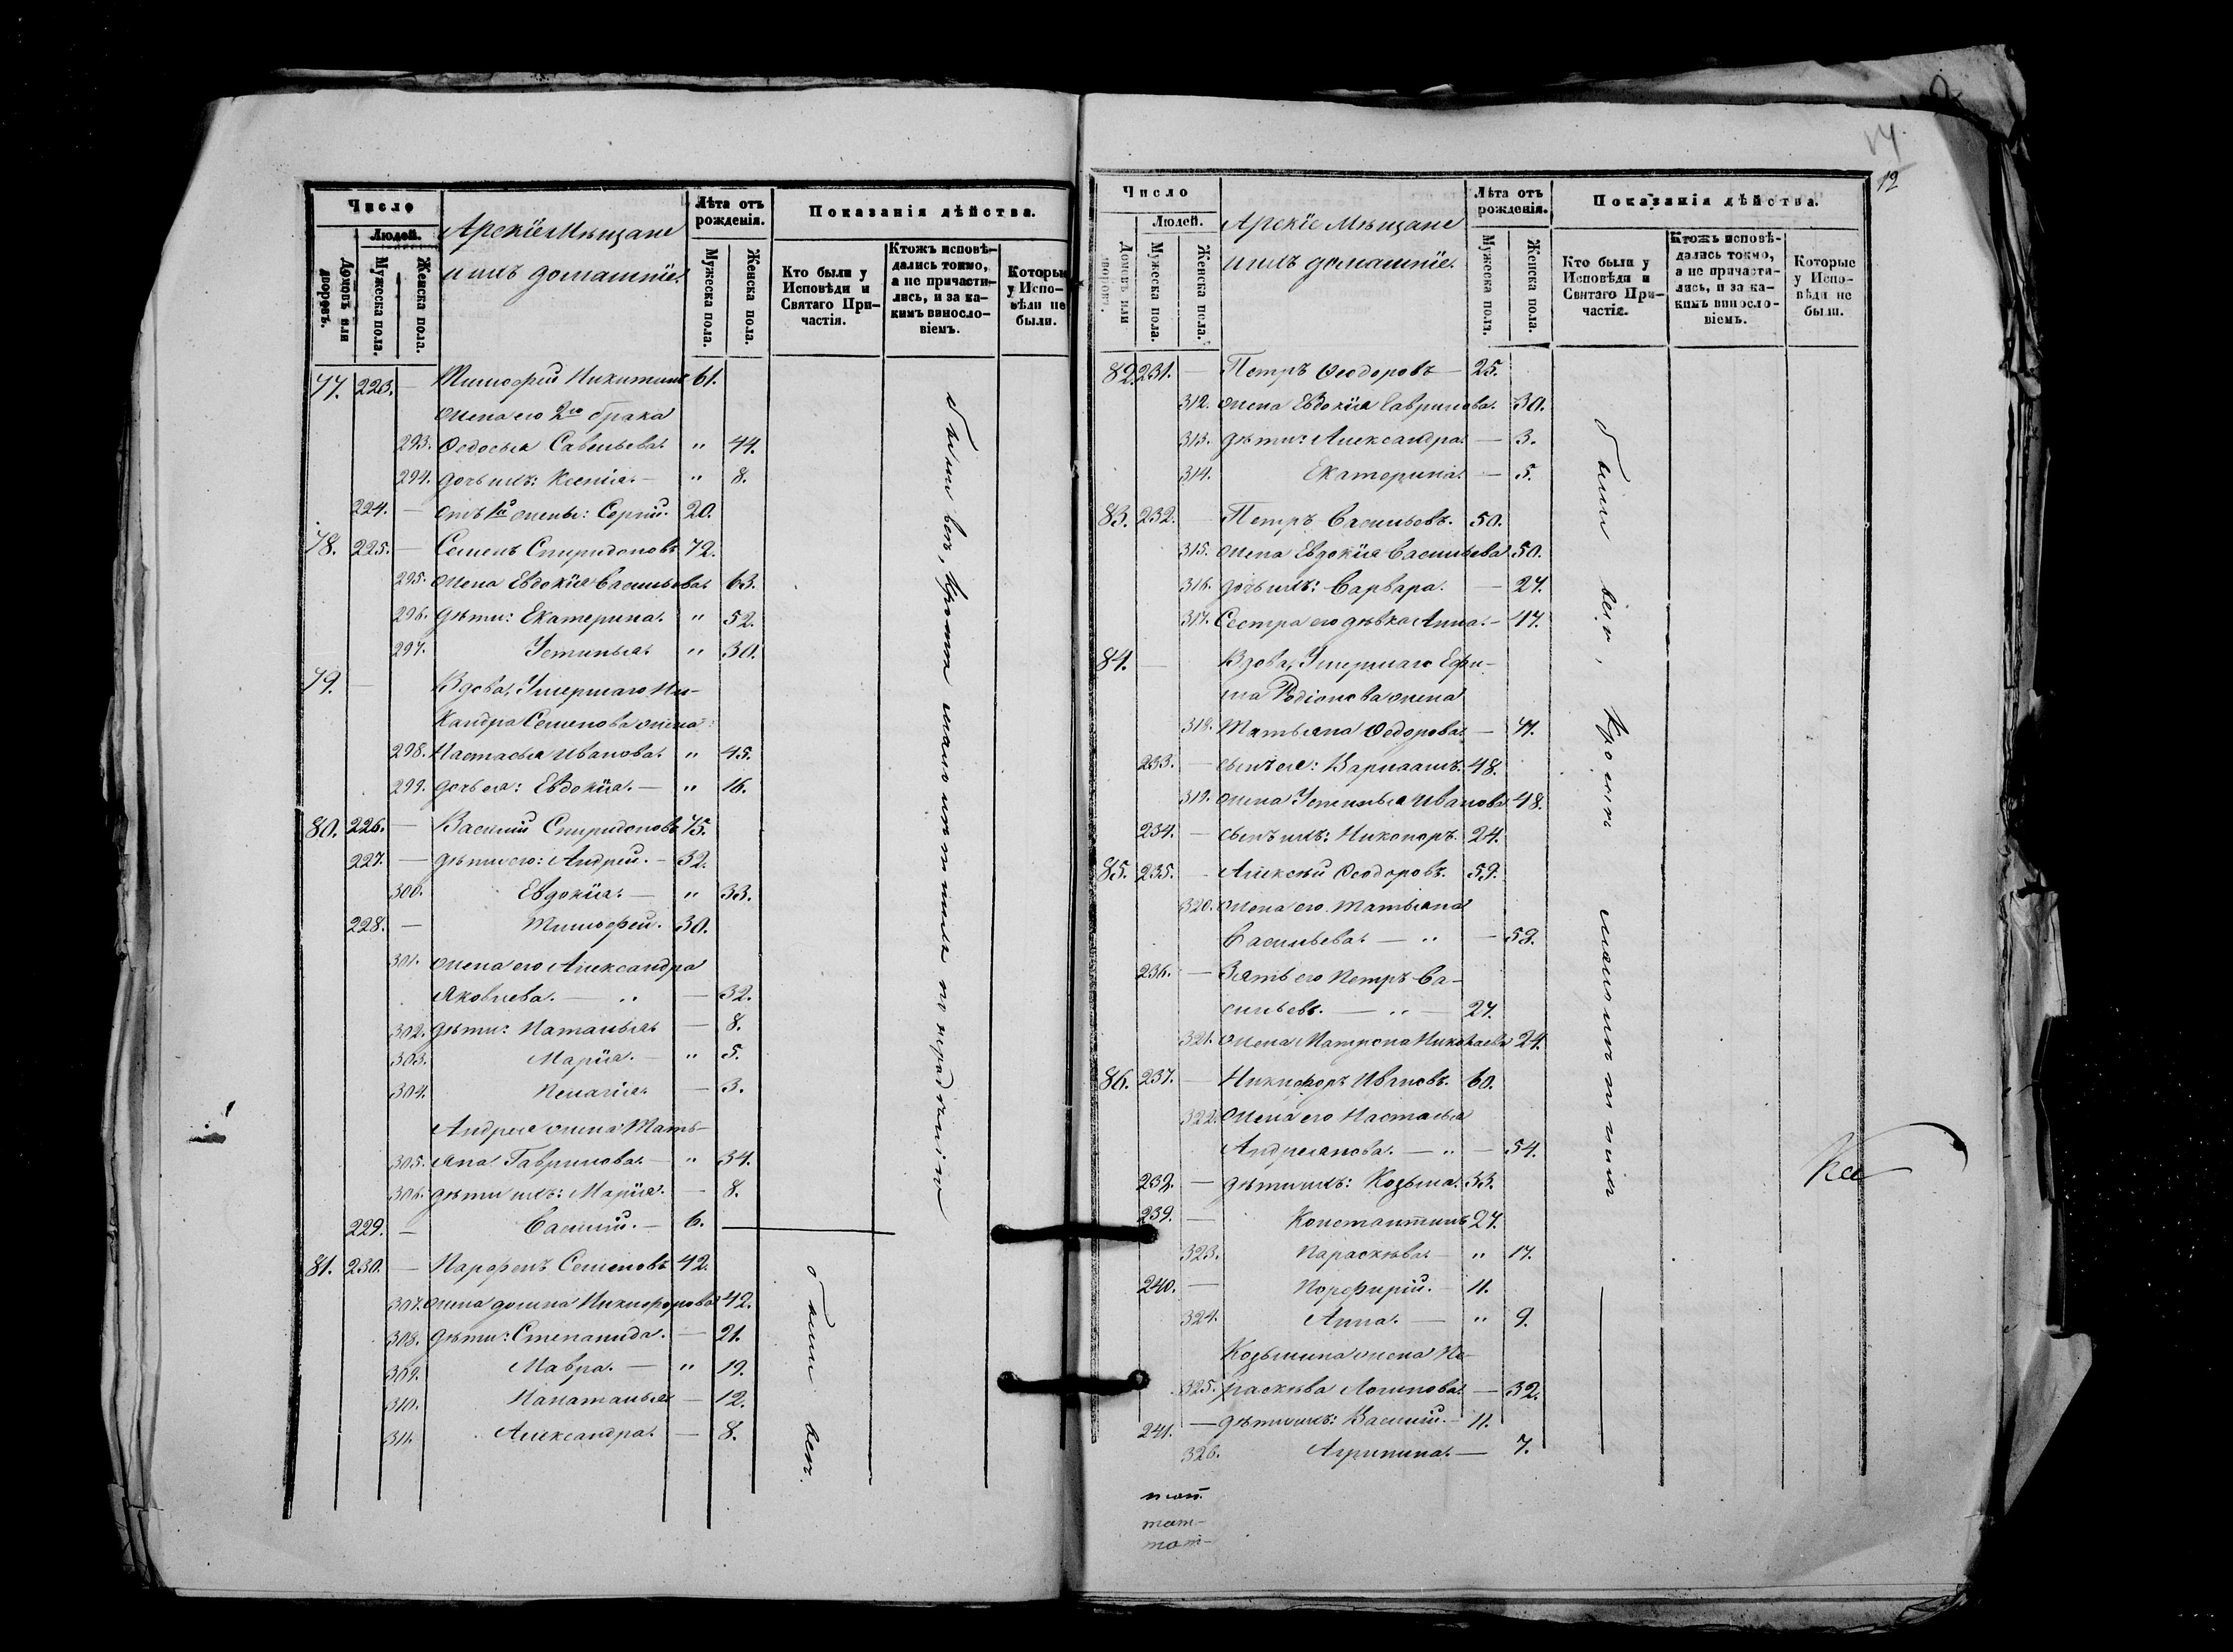 Число
Арскіе Мѣщане
и ихъ домашніе.
Лѣта отъ рожденія.
Показанія дѣйства.
Людей.
Домовъ или дворовъ.
Мужеска пола.
Женска пола.
Мужеска пола.
Женска пола.
Кто были у Исповѣди и Святаго Причастія.
Ктожъ исповѣдались токмо, а не причастились, и за какимъ винословіемъ.
Которые у Исповѣди не были.
77. 223. — Тимофей Никитинъ 61.
Жена его 2го брака
293. Ѳедосья Савельева. " 44.
294. дочь ихъ: Ксенія. — " 8.
224. — отъ 1й жены: Сергий. 20.
78. 225. — Семенъ Спиридоновъ 72.
295. Жена Евдокія Васильева. 63.
296. дѣти: Екатерина. " 52.
297. Устинья. " 30.
79. — Вдова, Умершаго Ни-
кандра Семенова жена
298. Настасья Иванова. " 45.
299. дочь ея: Евдокія. — " 16.
80. 226. — Василий Спиридоновъ 75.
227. — дѣти его: Андрей. — 32.
300. Евдокія. — " 33.
228. — Тимофей. 30.
301. Жена его Александра
Яковлева. — " — 32.
302. дѣти: Наталья — 8.
303. Марія. — " 5.
304. Пелагія. — 3.
Андрея жена Тать-
305. яна Гаврилова. — " 34.
306. дѣти ихъ: Марія. — 8.
229. — Василий. — 6.
81. 230. — Парфенъ Семеновъ 42.
307. Жена Домна Никифорова 42.
308. дѣти: Степанида. — 21.
309. Мавра. — " 19.
310. Наталья — 12.
311. Александра. — 8.
были всѣ, кромѣ малолѣтнихъ
были всѣ.
14
12
Число
Арскіе Мѣщане
и ихъ домашніе.
Лѣта отъ рожденія.
Показанія дѣйства.
Людей.
Домовъ или дворовъ.
Мужеска пола.
Женска пола.
Мужеска пола.
Женска пола.
Кто были у Исповѣди и Святаго Причастія.
Ктожъ исповѣдались токмо, а не причастились, и за какимъ винословіемъ.
Которые у Исповѣди не были.
82. 231. — Петръ Ѳеодоровъ — 25.
312. Жена Евдокія Гаврилова. 30.
313. дѣти: Александра. — 3.
314. Екатерина. — 5.
83. 232. — Петръ Васильевъ. 50.
315. Жена Евдокія Васильева 50.
316. дочь ихъ: Варвара. — 27.
317. Сестра его дѣвка Анна. — 47.
84. — Вдова, Умершаго Ефи-
ма Родіонова жена
318. Татьяна Ѳедорова. — 71.
233. — сынъ ея: Варлаамъ. 48.
319. Жена Устинья Иванова 48.
234. — сынъ ихъ: Никоноръ. 24.
85. 235. — Алексѣй Ѳеодоровъ. 59.
320. Жена его Татьяна
Васильева. — " — 59.
236. — Зять его Петръ Ва-
сильевъ. — " — 27.
321. Жена Матрона Николаева 24.
86. 237. — Никифоръ Ивановъ. 60.
322. Жена его Настасья
Андреянова. — " — 54.
239. — дѣти ихъ: Козьма. 33.
239. — Константинъ 27.
323. Параскѣва. — " 17.
240. — Порфирій. — 11.
324. Анна. — " 9.
Козьмина жена Па-
325. раскѣва Логинова. — 32.
241. — дѣти ихъ: Василій. — 11.
326. Агрипина. — 7.
были всѣ, кромѣ малолѣтнихъ